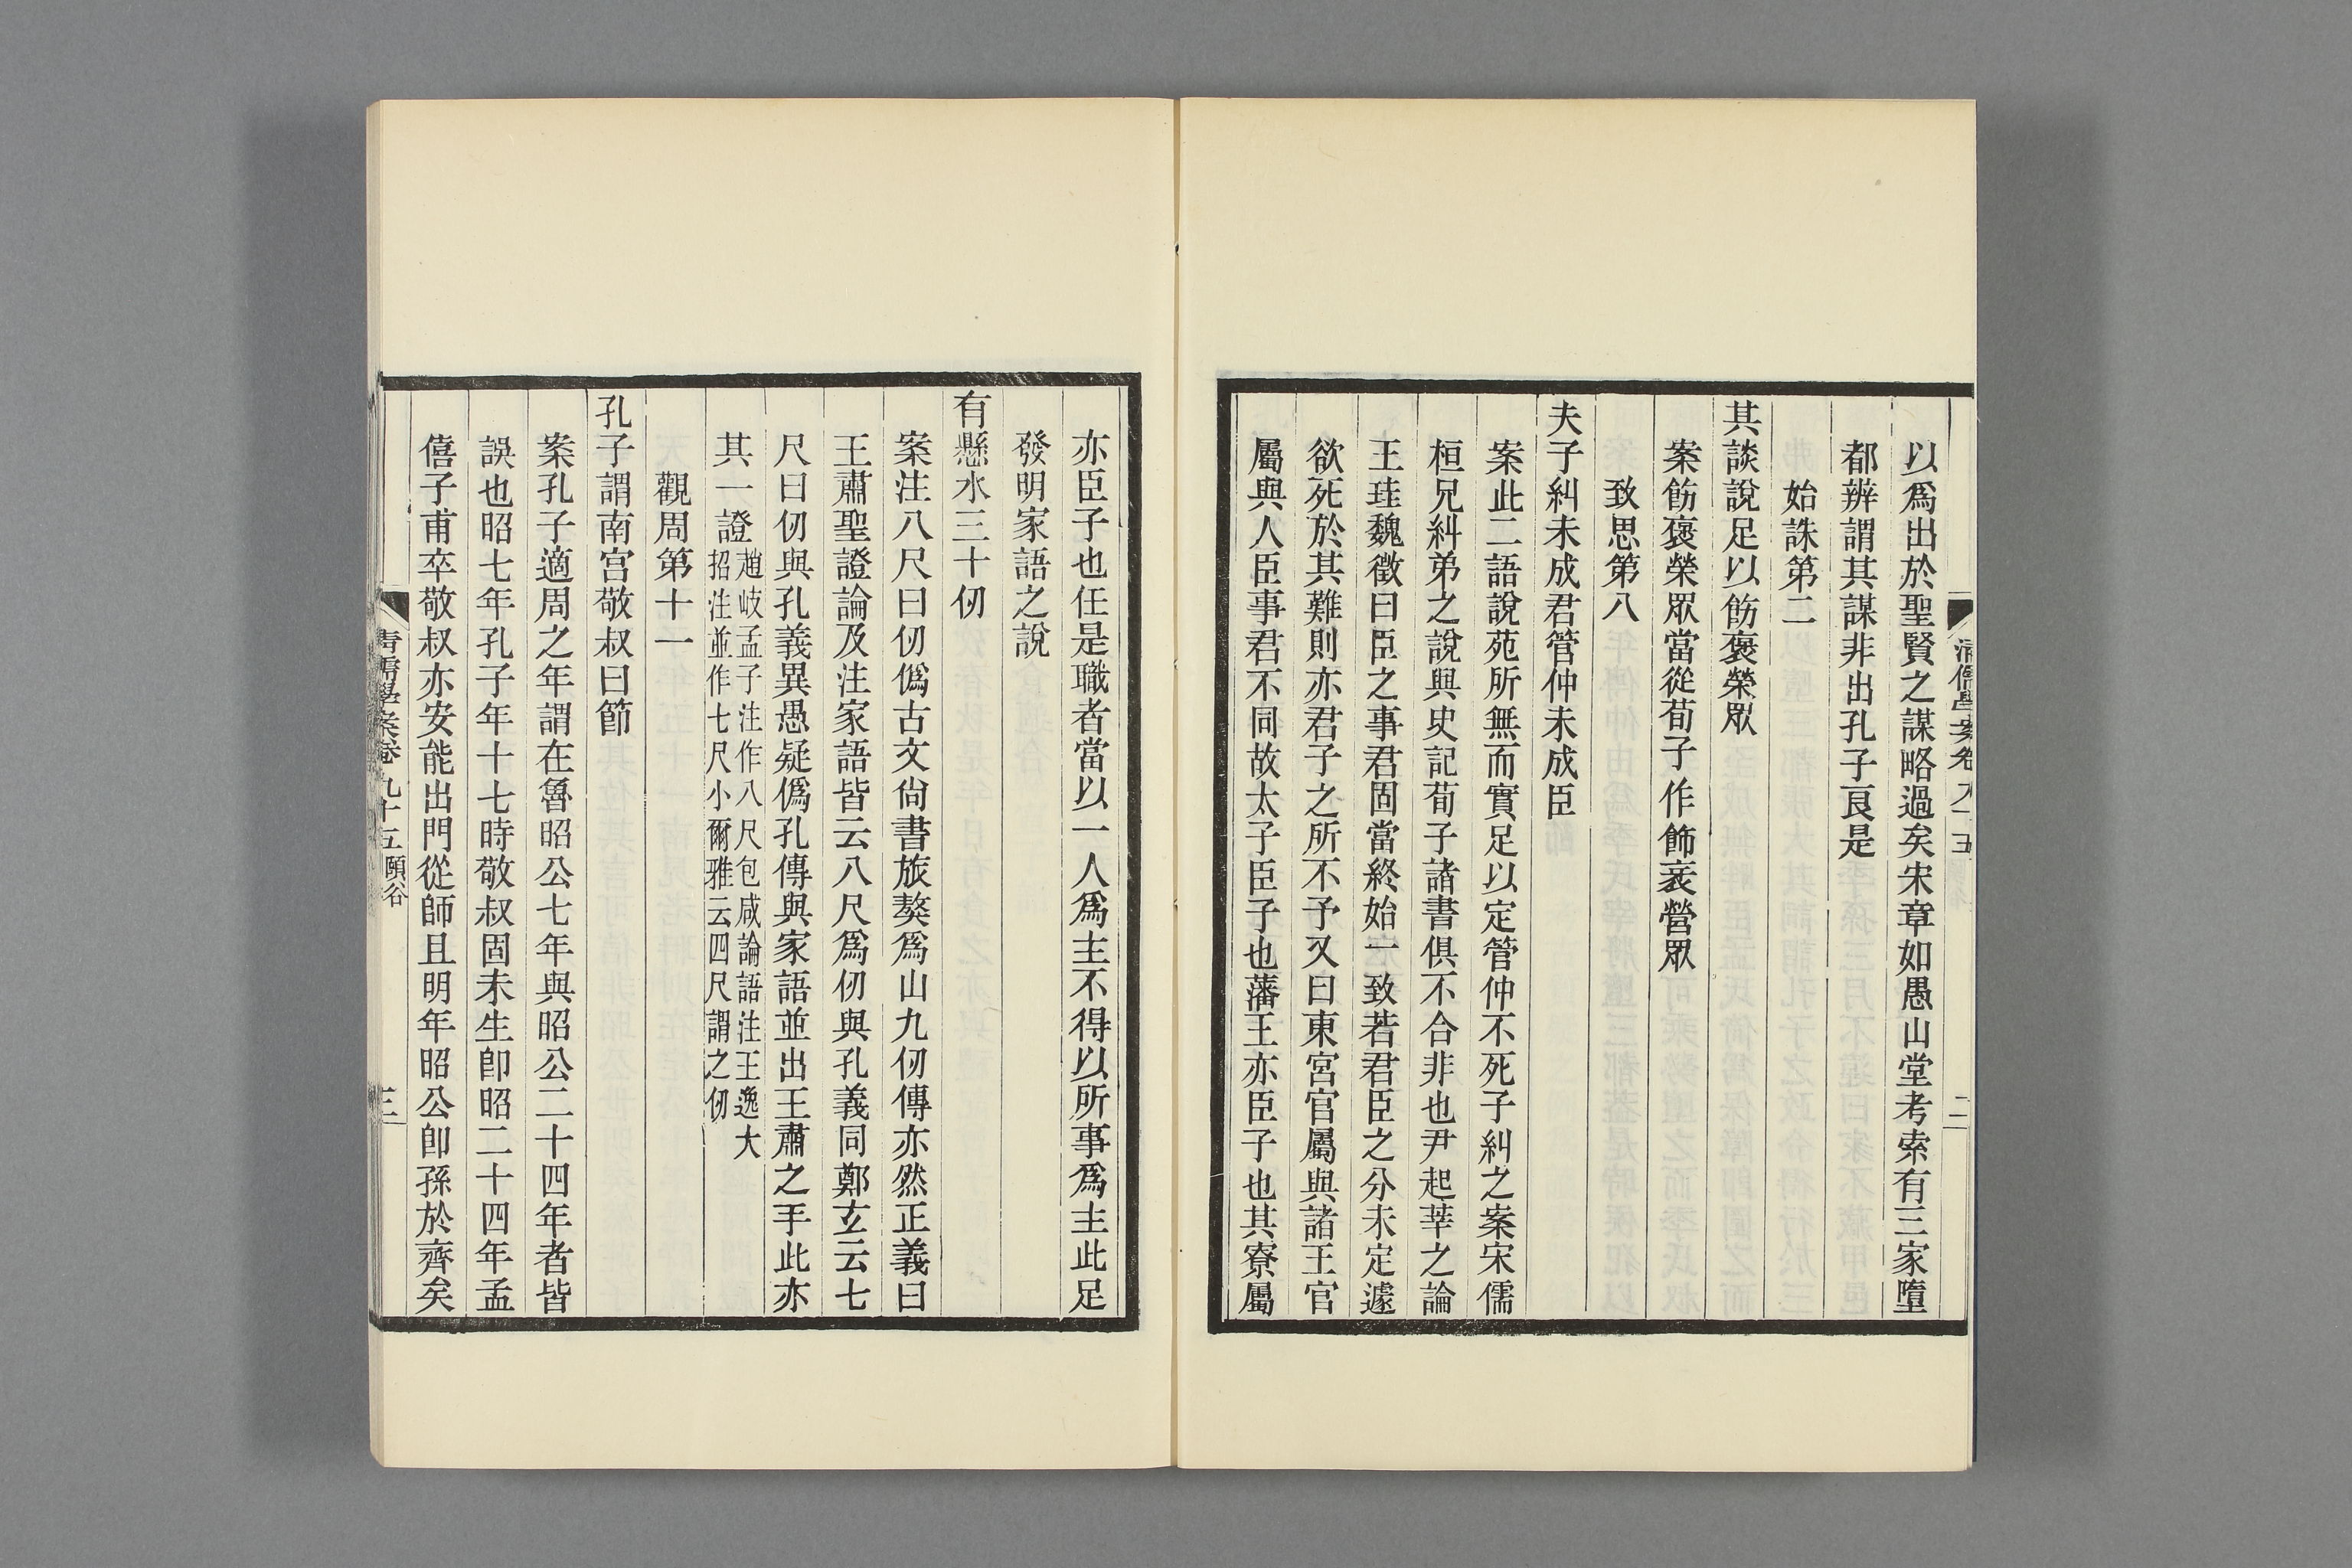 以爲出於聖賢之謀略過矣宋章如愚山堂考索有三家墮
都辨謂其謀非出孔子良是
始誅第二
其談說足以飭褒榮眾
案飭褒榮眾當從荀子作飾衺營眾
致思第八
夫子糾未成君管仲未成臣
案此二語說苑所無而實足以定管仲不死子糾之案宋儒
桓兄糾弟之說與史記荀子諸書俱不合非也尹起莘之論
王珪魏徵曰臣之事君固當終始一致若君臣之分未定遽
欲死於其難則亦君子之所不予又曰東宮官屬與諸王官
屬與人臣事君不同故太子臣子也藩王亦臣子也其寮屬
亦臣子也任是職者當以一人爲主不得以所事爲主此足
發明家語之說
有懸水三十仞
案注八尺曰仞僞古文尙書旅獒爲山九仞傳亦然正義曰
王肅聖證論及注家語皆云八尺爲仞與孔義同鄭玄云七
尺曰仞與孔義異愚疑僞孔傳與家語並出王肅之手此亦
其一證趙岐孟子注作八尺包咸論語注王逸大
招注並作七尺小爾雅云四尺謂之仞
觀周第十一
孔子謂南宮敬叔曰節
案孔子適周之年謂在魯昭公七年與昭公二十四年者皆
誤也昭七年孔子年十七時敬叔固未生卽昭二十四年孟
僖子甫卒敬叔亦安能出門從師且明年昭公卽孫於齊矣
清儒學案卷九十五 頤谷
三